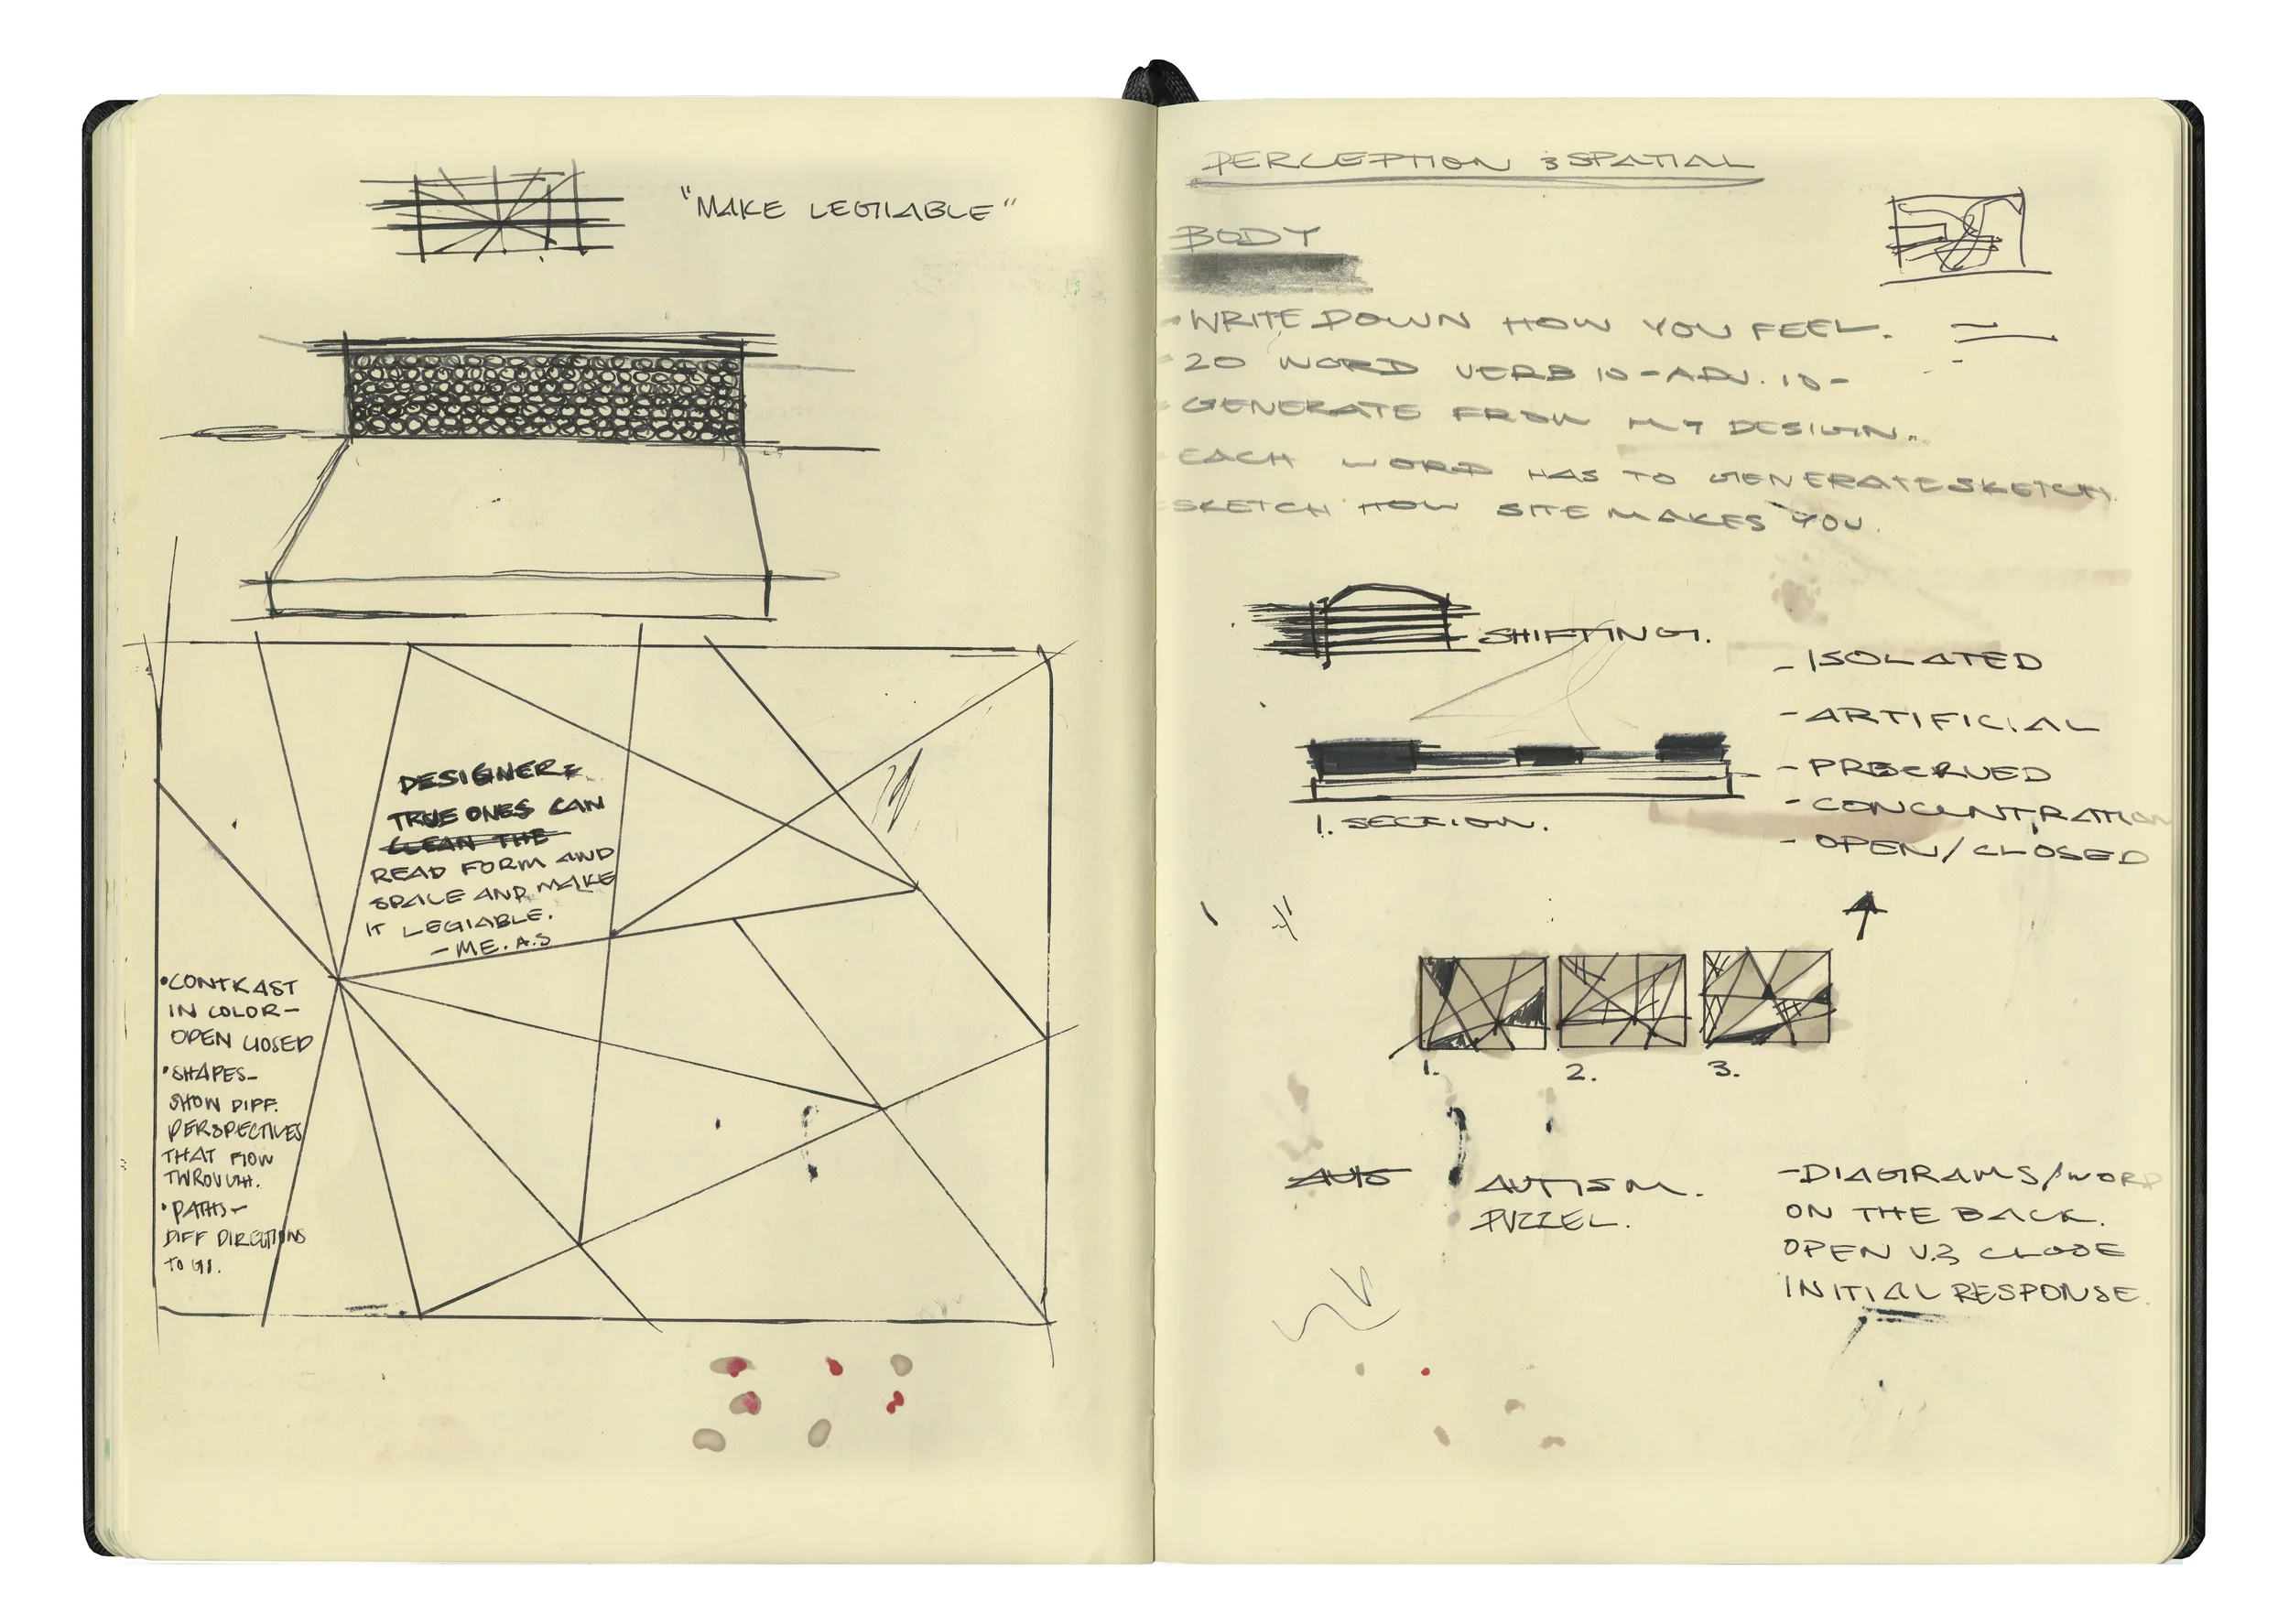 "MAKE LEGIABLE"
DESIGNER:
TRUE ONES CAN
CLEAN THE
READ FORM AND
SPACE AND MAKE
IT LEGIABLE.
-ME. A.S
•CONTRAST
IN COLOR-
OPEN CLOSED
•SHAPES-
SHOW DIFF.
PERSPECTIVES
THAT FLOW
THROUGH.
•PATHS-
DIFF DIRECTIONS
TO GO.
PERCEPTION & SPATIAL
BODY
•WRITE DOWN HOW YOU FEEL.
•20 WORD VERB 10-ADV. 10-
•GENERATE FROM MY DESIGN.
•EACH WORD HAS TO GENERATE SKETCH.
SKETCH HOW SITE MAKES YOU.
SHIFTING.
1. SECTION.
- ISOLATED
- ARTIFICIAL
- PRESERVED
- CONCUNTRATION
- OPEN/CLOSED
1. 2. 3.
AUS
AUTISM.
PUZZEL.
-DIAGRAMS/WORD
ON THE BACK.
OPEN V.S CLOSE
INITIAL RESPONSE.